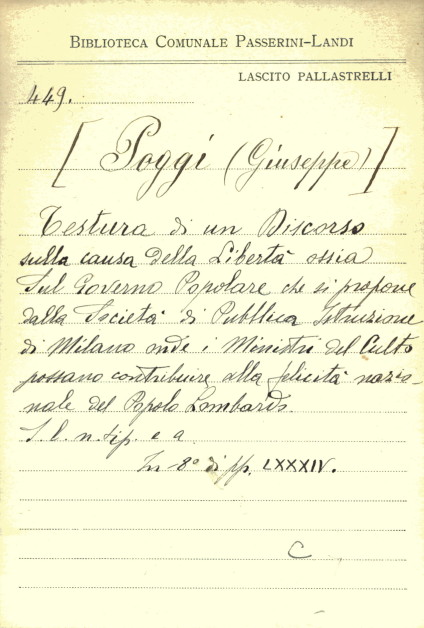 BIBLIOTECA COMUNALE PASSERINI-LANDI
LASCITO PALLASTRELLI
449.
[Poggi (Giuseppe)]
Testura di un Discorso
sulla causa della Libertà ossia
sul Governo Popolare che si propone
dalla Società di Pubblica Istruzione
di Milano onde i Ministri del Culto
possano contribuire alla felicità nazio-
nale del Popolo Lombardo.
S. l. n. tip. e a.
In 8° di pp. LXXXIV.
C